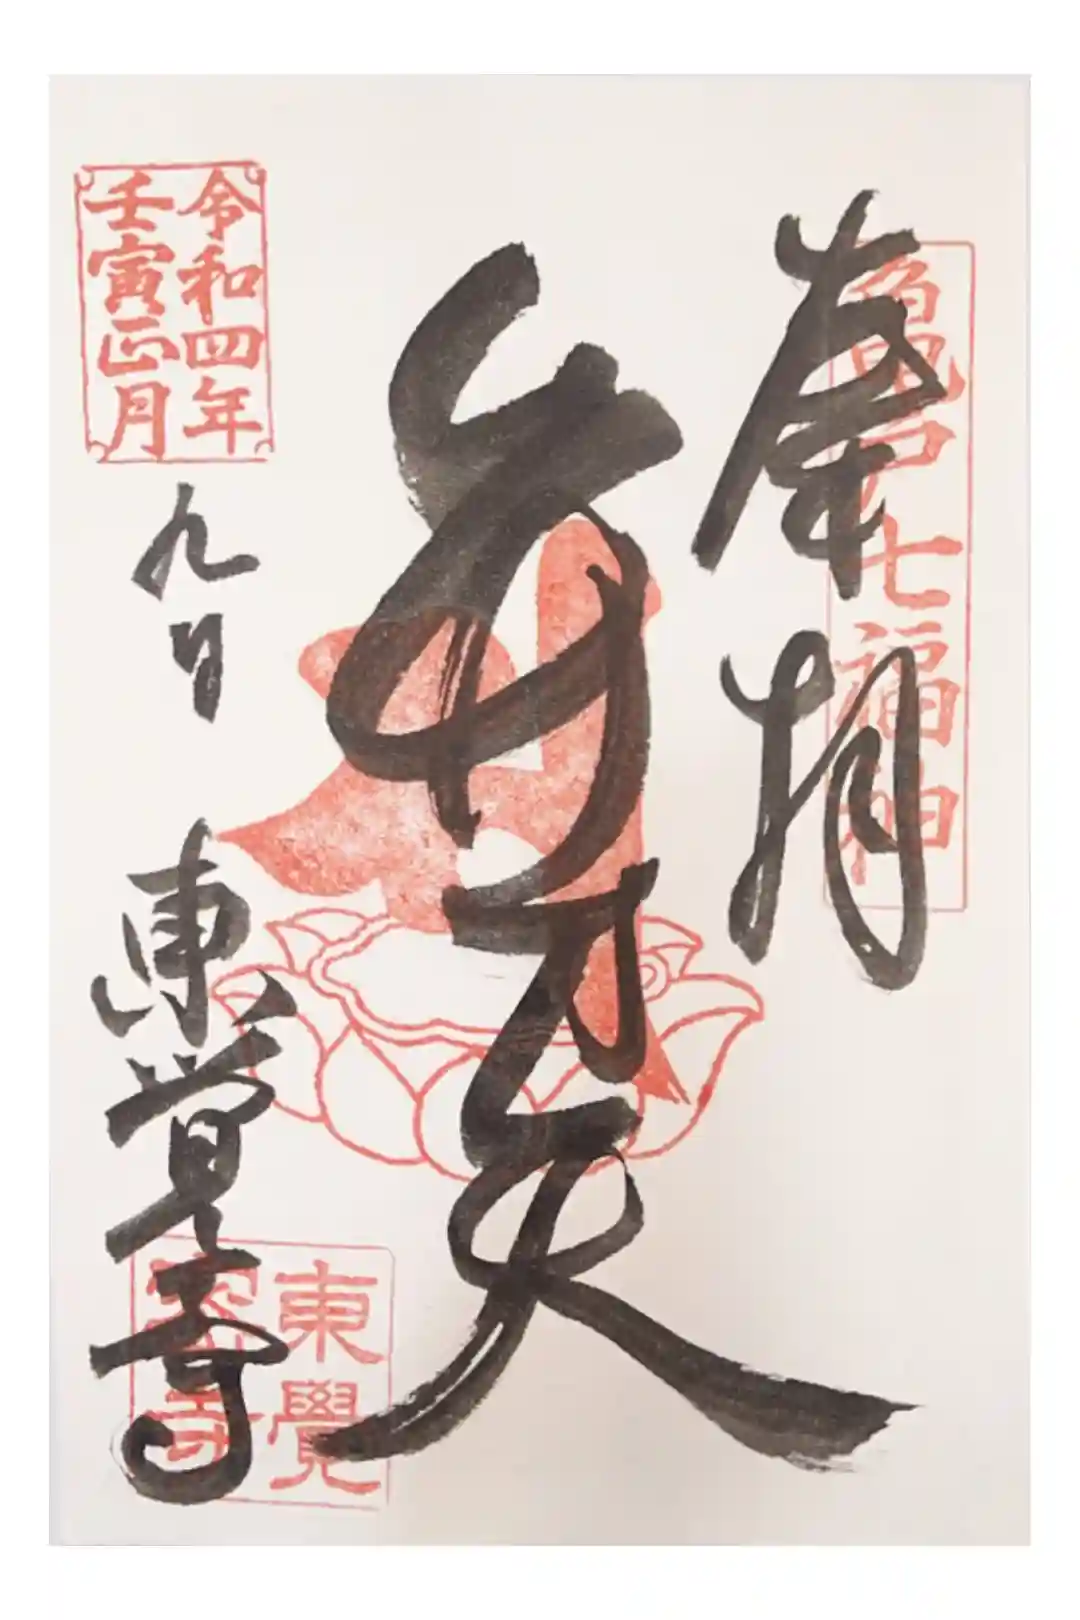 奉拝
亀戸七福神
弁才天
令和四年
壬寅正月
九日
東覚寺
東覺
密寺